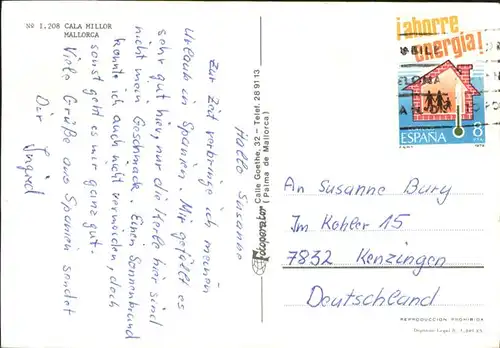 Nº I.208 CALA MILLOR
MALLORCA
Hallo Susanne
Zur Zeit verbringe ich meinen
Urlaub in Spanien. Mir gefällt es
sehr gut hier, nur die Kerle hier sind
nicht mein Geschmack. Einen Sonnenbrand
konnte ich auch nicht vermeiden, doch
sonst geht es mir ganz gut.
Viele Grüße aus Spanien sendet
Dir Ingrid
Fotoperator Calle Goethe, 32 - Telef. 28 91 13
(Palma de Mallorca)
¡ahorre
energía!
ESPAÑA 8
PTA
1979
An Susanne Burg
Im Kohler 15
7832 Kenzingen
Deutschland
REPRODUCCION PROHIBIDA